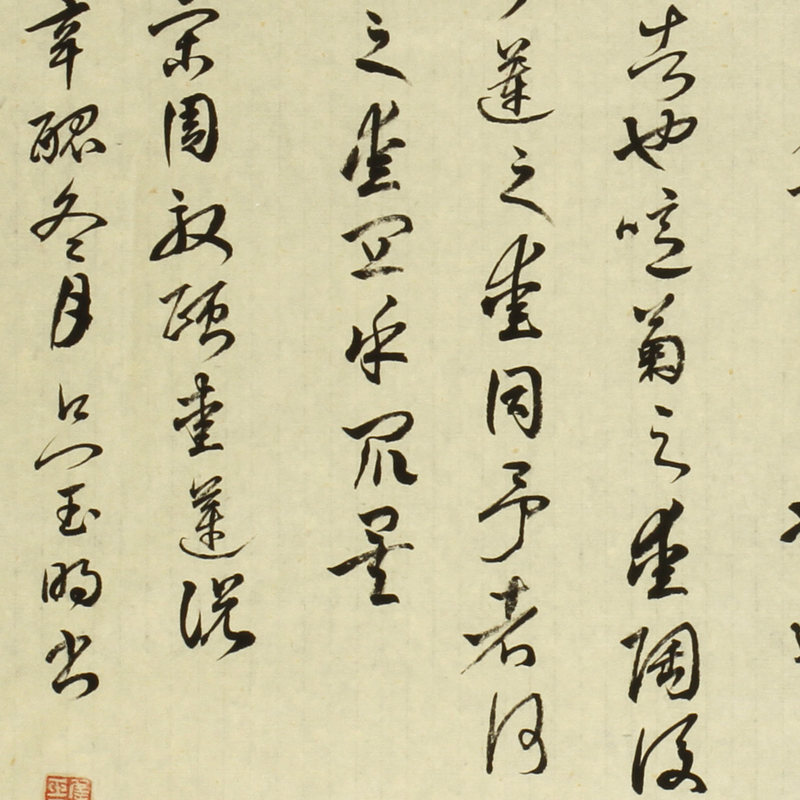 者也噫菊之愛陶後
蓮之愛同予者何
之愛宜乎眾矣
宋周敦頤愛蓮說
辛醜冬月吳玉明書